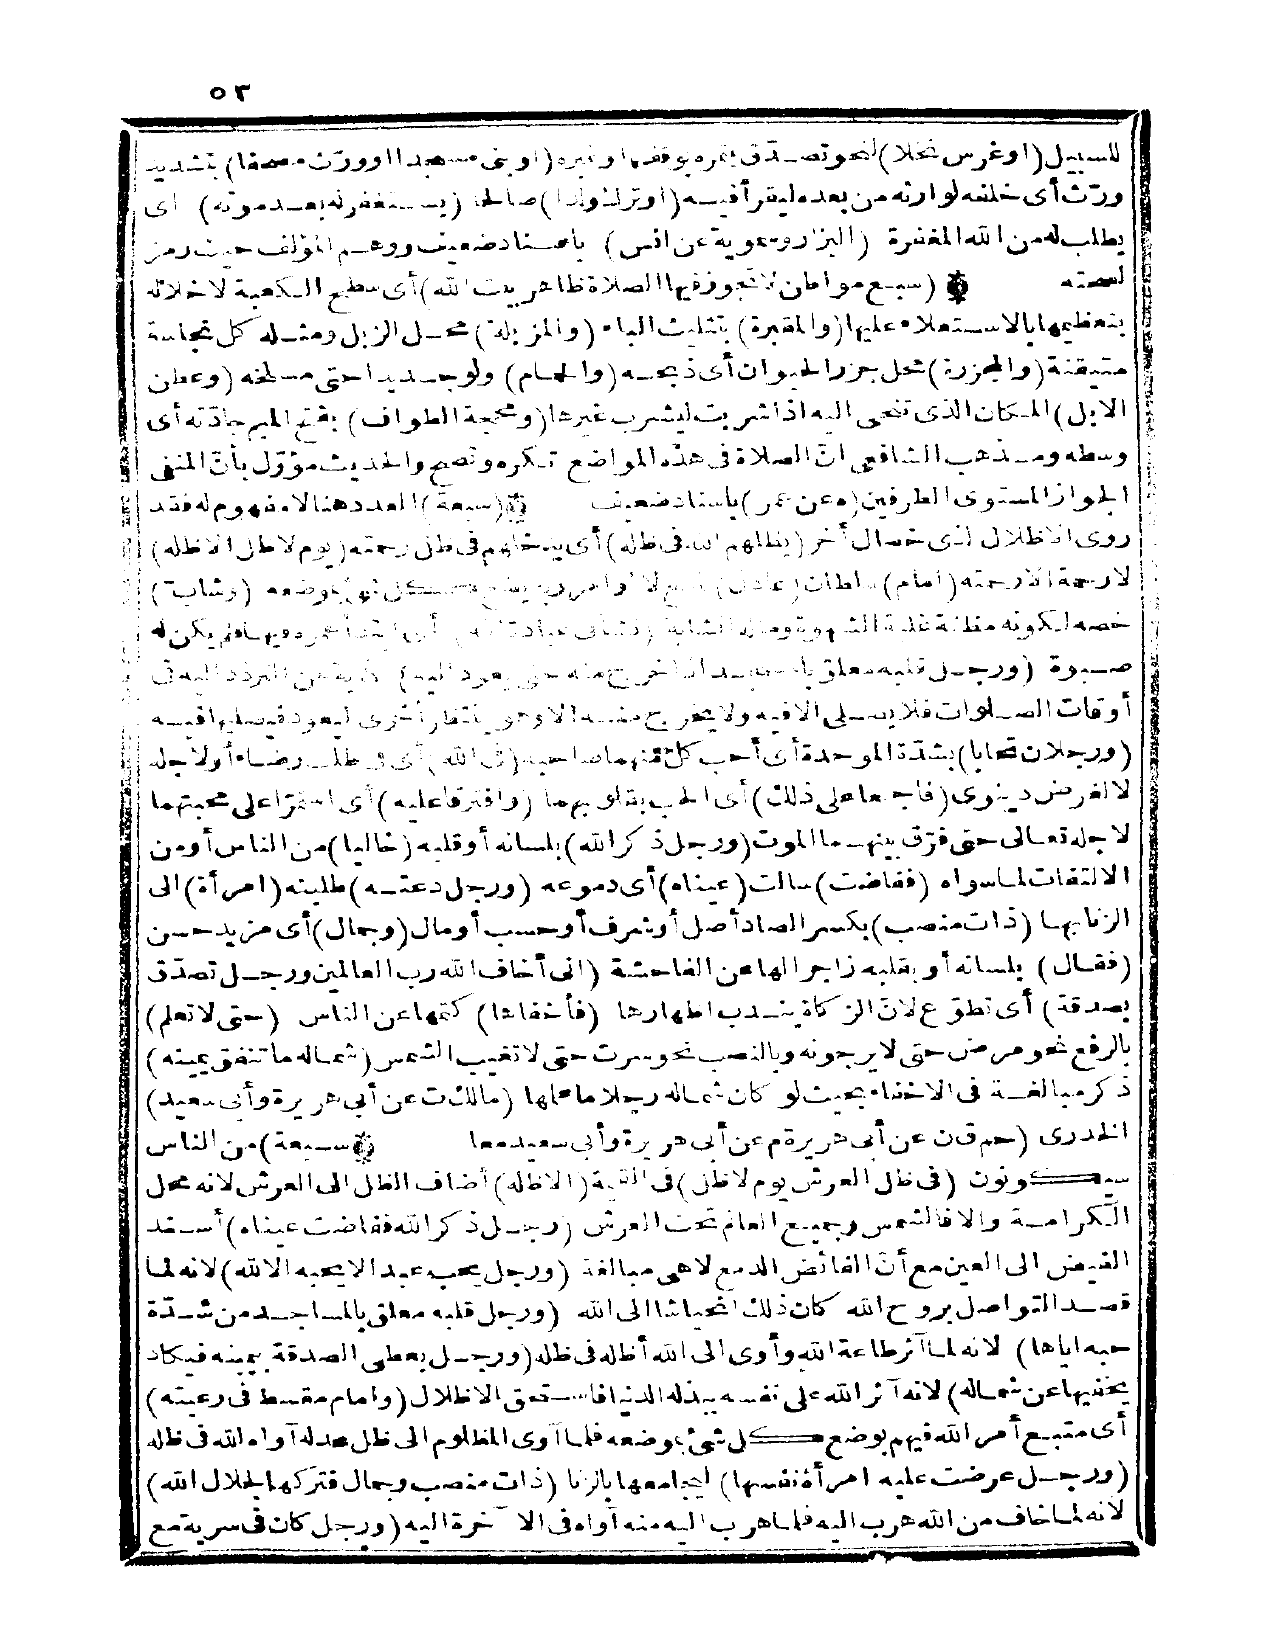 ٥٣
للسبيل (أوغرس نخلا) لنحو تصدق بثمره بوقفها أو غيره (أو بنى مسجدا أو ورّث مصحفا) بتشديد
ورّث أى خلفه لوارثه من بعده ليقرأ فيه (أو ترك ولدا) صالحا (يستغفر له بعد موته) أى
يطلب له من الله المغفرة (البزار وسمويه عن أنس) باسناد ضعيف ووهم المؤلف حيث رمز
لصحته (سبع مواطن لا تجوز فيها الصلاة ظاهر بيت الله) أى سطح الكعبة لاخلاله
بتعظيمها بالاستعلاء عليها (والمقبرة) بتثليث الباء (والمزبلة) محل الزبل ومثله كل نجاسة
متيقنة (والمجزرة) محل جزر الحيوان أى ذبحه (والحمام) ولو جديدا حتى مسلخه (وعطن
الابل) المكان الذى تنحى اليه اذا شربت ليشرب غيرها (ومحجة الطواف) بفتح الميم جادته أى
وسطه ومذهب الشافعى انّ الصلاة فى هذه المواضع تكره وتصح والحديث مؤوّل بأنّ المنفى
الجواز المستوى الطرفين (ه عن عمر) باسناد ضعيف (سبعة) العدد هنا لا مفهوم له فقد
روى الاظلال لذى خصال أخر (يظلهم الله فى ظله) أى يدخلهم فى ظل رحمته (يوم لا ظل الا ظله)
لا رحمة الا رحمته (امام) سلطان (عادل) لا وامر ربه كل موضعه (وشاب)
خصه لكونه مظنة غلبة الشهوة (نشأ فى عبادة الله) فلم يكن له
صبوة (ورجل قلبه معلق بالمسجد اذا خرج منه حتى يعود اليه) كناية عن التردد اليه فى
أوقات الصلوات فلا يصلى الا فيه ولا يخرج منه الا وهو ينتظر أخرى ليعود فيصليها فيه
(ورجلان تحابا) بشدّة الموحدة أى أحب كل منهما صاحبه (فى الله) أى فى طلب رضاه أو لاجله
لا لغرض دنيوى (فاجتمعا على ذلك) أى الحب بقلوبهما (وافترقا عليه) أى استمرّا على محبتهما
لاجله تعالى حتى فرّق بينهما الموت (ورجل ذكر الله) بلسانه أو قلبه (خاليا) من الناس أو من
الالتفات لما سواه (ففاضت) سالت (عيناه) أى دموعه (ورجل دعته) طلبته (امرأة) الى
الزنا بها (ذات منصب) بكسر الصاد أصل أو شرف أو حسب أو مال (وجمال) أى مزيد حسن
(فقال) بلسانه أو بقلبه زاجرا لها عن الفاحشة (انى أخاف الله رب العالمين ورجل تصدّق
بصدقة) أى تطوّع لانّ الزكاة يندب اظهارها (فأخفاها) كتمها عن الناس (حتى لا تعلم)
بالرفع نحو مرض حتى لا يرجونه وبالنصب نحو سرت حتى لا تغيب الشمس (شماله ما تنفق يمينه)
ذكره مبالغة فى الاخفاء بحيث لو كان شماله رجلا ما علمها (مالك ت عن أبى هريرة وأبى سعيد)
الخدرى (حم ق ن عن أبى هريرة م عن أبى هريرة وأبى سعيد معا (سبعة) من الناس
سيكونون (فى ظل العرش يوم لا ظل) فى القية (الا ظله) أضاف الظل الى العرش لانه محل
الكرامة والا فالشمس وجميع العالم تحت العرش (رجل ذكر الله ففاضت عيناه) أسند
الفيض الى العين مع أنّ الفائض الدمع لا هى مبالغة (ورجل يحب عبدا لا يحبه الا لله) لانه لما
قصد التواصل بروح الله كان ذلك انحياشا الى الله (ورجل قلبه معلق بالمساجد من شدّة
حبه اياها) لانه لما آثر طاعة الله وأوى الى الله أظله فى ظله (ورجل يعطى الصدقة بيمينه فيكاد
يخفيها عن شماله) لانه آثر الله على نفسه ببذله الدنيا فاستحق الاظلال (وامام مقسط فى رعيته)
أى متبع أمر الله فيهم بوضع كل شئ بموضعه فلما آوى المظلوم الى ظل عدله آواه الله فى ظله
(ورجل عرضت عليه امرأة نفسها) ليجامعها بالزنا (ذات منصب وجمال فتركها لجلال الله)
لانه لما خاف من الله هرب اليه فلما هرب اليه منه آواه فى الآخرة اليه (ورجل كان فى سرية مع